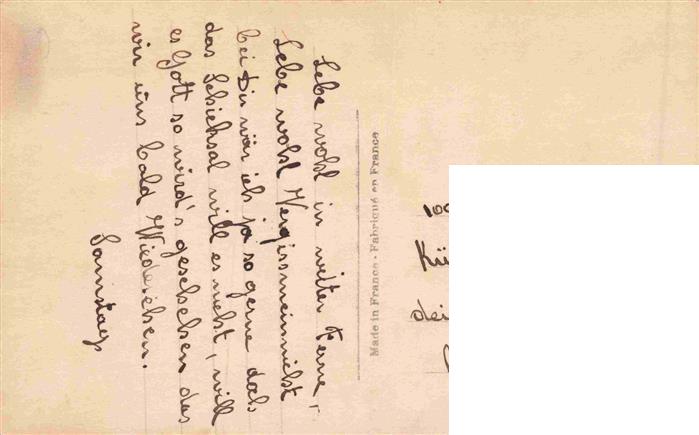 Lebe wohl in weiter Ferne,
Lebe wohl Vergissmeinnicht
bei Dir wär ich ja so gerne doch
das Schicksal will es nicht, will
es Gott so wird's geschehen das
wir uns bald Wiedersehen.
Samstag
Made in France - Fabriqué en France
100
Kü
dei